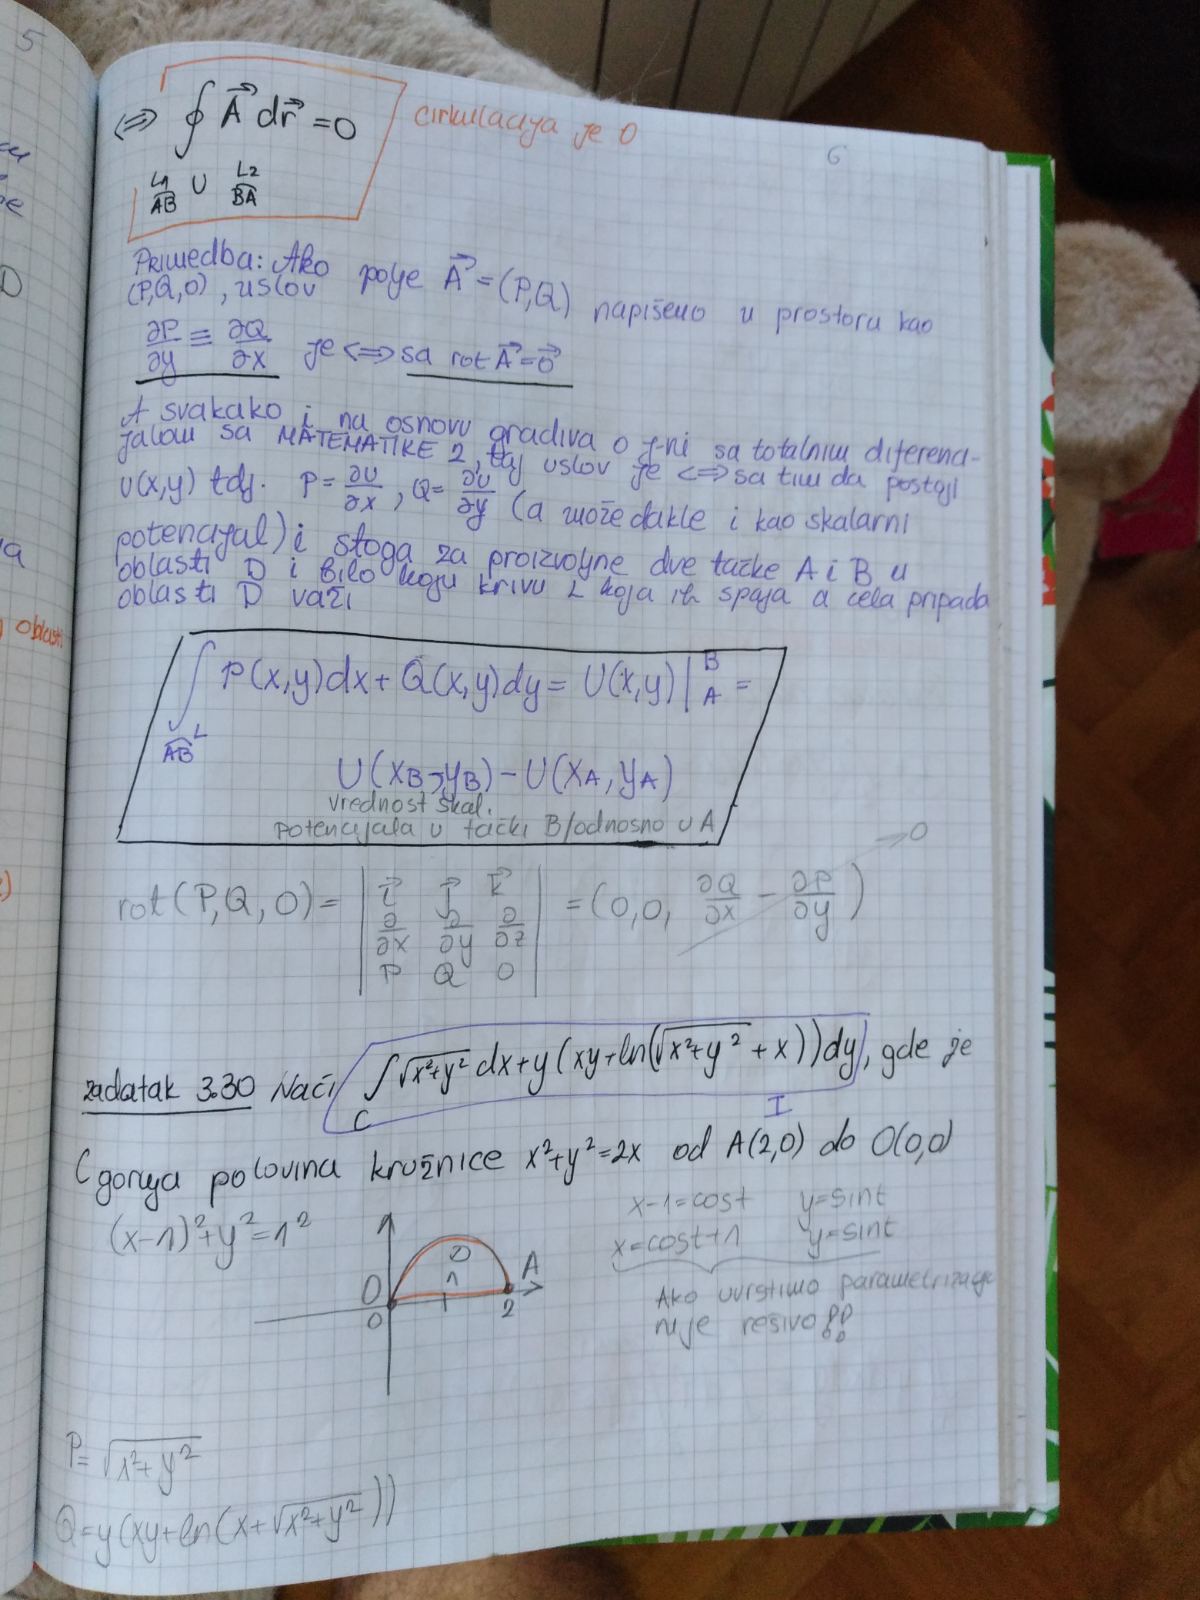 5
6
⇔ ∮ A⃗ dr⃗ = 0 cirkulacija je 0
L1 AB ∪ L2 BA
Primedba: Ako polje A⃗ = (P,Q) napišemo u prostoru kao
(P,Q,0), uslov
∂P/∂y ≡ ∂Q/∂x je ⇔ sa rot A⃗ = 0⃗
A svakako i na osnovu gradiva o j-ni sa totalnim diferenci-
jalom sa MATEMATIKE 2, taj uslov je ⇔ sa tim da postoji
U(x,y) tdj. P = ∂U/∂x, Q = ∂U/∂y (a može dakle i kao skalarni
potencijal) i stoga za proizvoljne dve tačke A i B u
oblasti D i bilo koju krivu L koja ih spaja a cela pripada
oblasti D važi
∫ P(x,y)dx + Q(x,y)dy = U(x,y) |_A^B =
AB L
U(xB, yB) - U(xA, yA)
vrednost skal.
potencijala u tački B/odnosno u A
rot(P,Q,0) = | i⃗ j⃗ k⃗ | = (0,0, ∂Q/∂x - ∂P/∂y) → 0
∂/∂x ∂/∂y ∂/∂z
P Q 0
zadatak 3.30 Naći ∫ √x²+y² dx + y(xy+ln(√x²+y² + x))dy, gde je
C
I
C gornja polovina kružnice x²+y²=2x od A(2,0) do O(0,0)
(x-1)²+y²=1²
x-1=cost y=sint
x=cost+1 y=sint
Ako uvrstimo parametrizacije
nije rešivo!!
D
1
A
O
0
2
P = √x²+y²
Q = y(xy+ln(x+√x²+y²))
D
oblasti